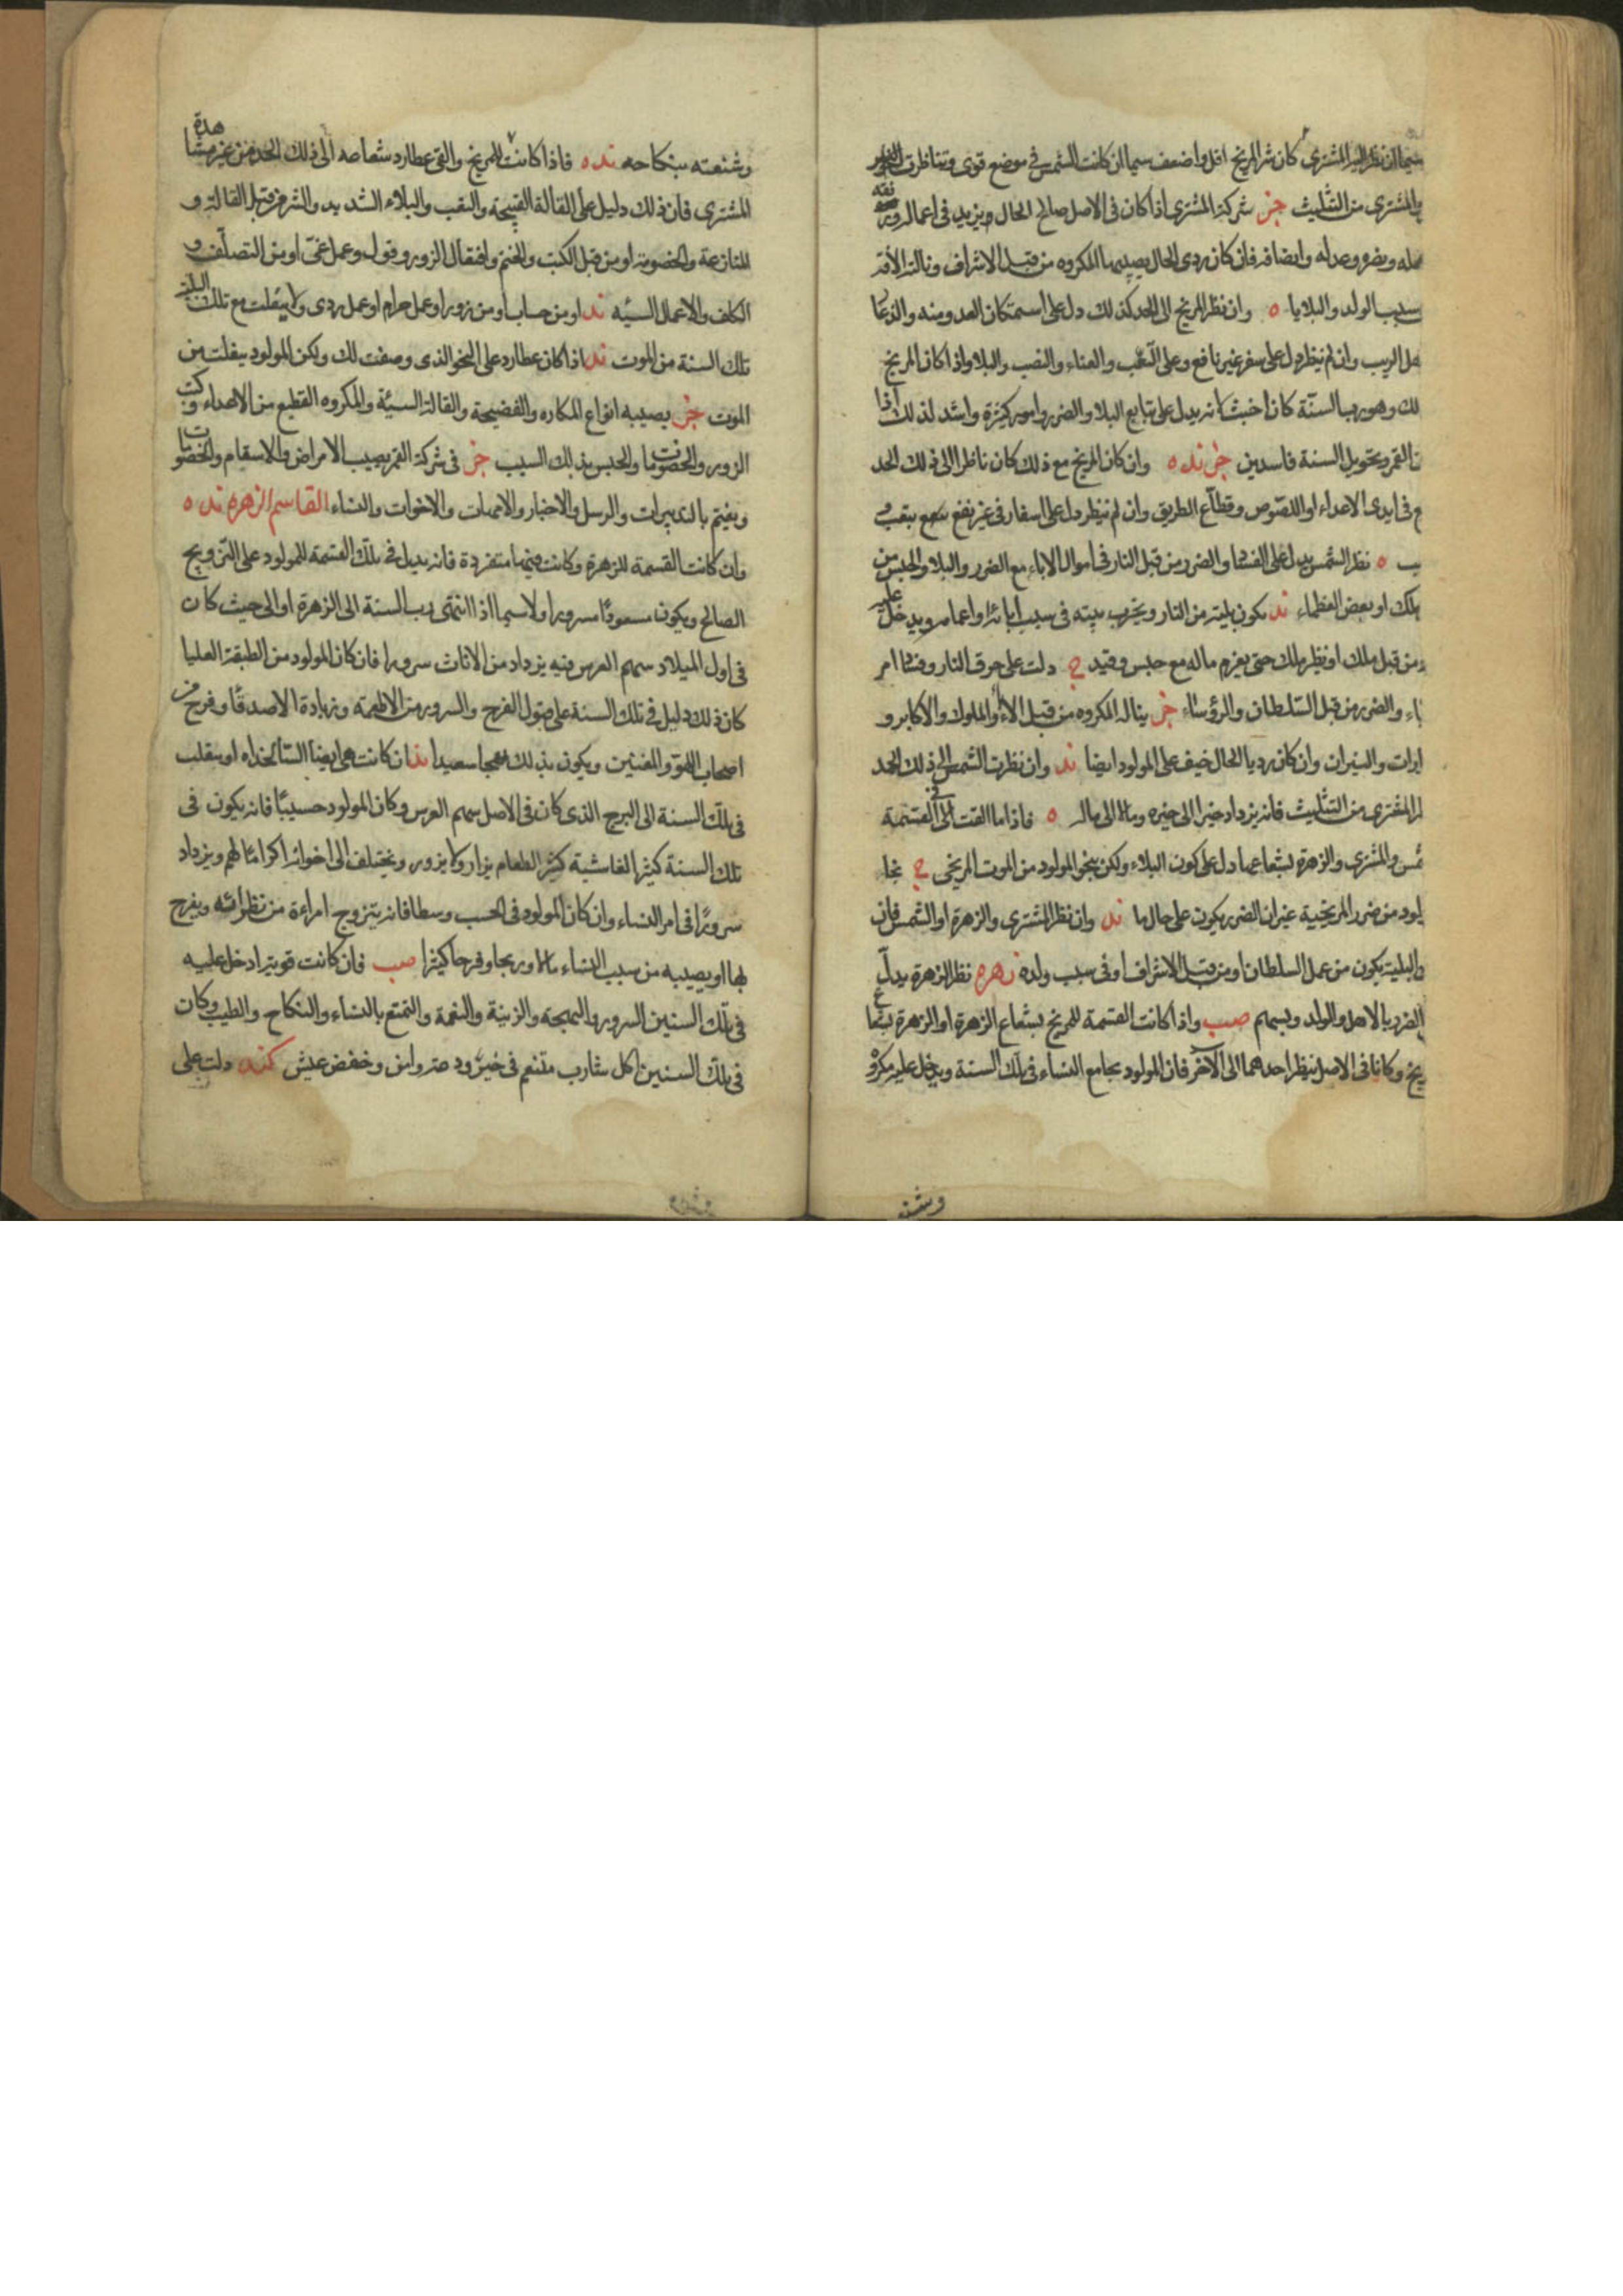 سيما ان نظر اليه المشترى كان شر المريخ اقل واضعف سيما ان كانت الشمس فى موضع قوى وتناظرت
المشترى من التثليث خز شركة المشترى اذا كان فى الاصل صالح الحال ويزيد فى اعماله
فان كان ردى الحال يصيبهما المكروه من قبل الاشراف ونالته الآفة
بسبب الولد والبلايا ه وان نظر المريخ الى الحد كذلك دل على استمكان العدو منه والذعار
هل الريب وان لم ينظر دل على سفر غير نافع وعلى التعب والعناء والنصب والبلا واذا كان المريخ
لك وهو رب السنة كان اخبث لانه يدل على تتابع البلا والضرر وامور كثيرة واشد لذلك اذا
ن القمر وتحويل السنة فاسدين خز ند ه وان كان المريخ مع ذلك كان ناظرا الى ذلك الحد
ع فى ايدى الاعداء او اللصوص وقطاع الطريق وان لم ينظر دل على اسفار فى غير نفع مع تعب و
يب ه نظر الشمس يدل على الفساد والضرر من قبل النار فى اموال الاباء مع الضرر والبلا والحبس من
ملك او بعض العظماء ند يكون بليته من النار ويخرب بيته فى سبب ابائه واعمامه ويدخل عليه
من قبل ملك او نظير ملك حتى يغرم ماله مع حبس وقيد ج دلت على حرق النار وفساد امر
باء والضرر من قبل السلطان والرؤساء خز يناله المكروه من قبل الاباء والملوك والاكابر و
ارات والنيران وان كان رديا الحال خيف على المولود ايضا ند وان نظرت الشمس الى ذلك الحد
المشترى من التثليث فانه يزداد خيرا الى خيره ومالا الى ماله ه فاذا ما القت الى القسمة
شمس والمشترى والزهرة بشعاعها دل على كون البلاء ولكن ينجو المولود من الموت المريخى ج نجا
لود من ضرر المريخية غير ان الضرر يكون على حال ما ند وان نظر المشترى والزهرة او الشمس فان
البلية يكون من عمل السلطان او من قبل الاشراف او فى سبب ولده زهره نظر الزهرة يدل
الضرر بالاهل والولد وبسهم صب واذا كانت القسمة للمريخ بشعاع الزهرة او الزهرة بشعاع
يخ وكانا فى الاصل ينظر احدهما الى الآخر فان المولود يجامع النساء فى تلك السنة ويدخل عليه مكروه
وشنعته
وشنعته بنكاحه ند ه فاذا كانت للمريخ والقى عطارد شعاعه الى ذلك الحد من غير مشاهدة
المشترى فان ذلك دليل على القالة القبيحة والتعب والبلاء الشديد والشر من قبل القالة و
المنازعة والخصومة او من قبل الكتب والختم وافتعال الزور وقول وعمل غى او من التصلف و
الكلف والاعمال السيئه ند او من حساب او من زور او عمل حرام او عمل ردى ولا يفلت مع تلك البلايا
تلك السنة من الموت ند اذا كان عطارد على النحو الذى وصفت لك ولكن المولود يفلت من
الموت خز يصيبه انواع المكاره والفضيحة والقالة السيئة والمكروه القطيع من الاعداء وكتب
الزور والخصومات والحبس بذلك السبب خز فى شركة القمر يصيب الامراض والاسقام والخصومات
ويغتم بالتدبيرات والرسل والاخبار والامهات والاخوات والنساء القاسم الزهره ند ه
وان كانت القسمة للزهرة وكانت فيها متفردة فانه يدل فى تلك القسمة للمولود على التزويج
الصالح ويكون مسعودًا مسرورا ولا سيما اذا انتهى رب السنة الى الزهرة او الى حيث كان
فى اول الميلاد سهم العرس فيه يزداد من الاناث سرورا فان كان المولود من الطبقة العليا
كان ذلك دليل فى تلك السنة على قبول الفرح والسرور من الاطعمة وزيادة الاصدقاء وفرح من
اصحاب اللهو والمغنيين ويكون بذلك معجبا سعيدا ند ان كانت هى ايضا السالخداه او ينقلب
فى تلك السنة الى البرج الذى كان فى الاصل سهم العرس وكان المولود حسيبًا فانه يكون فى
تلك السنة كثير الغاشية كثير الطعام يزار ولا يزور ويختلف الى اخوانه اكرامًا لهم ويزداد
سرورًا فى امر النساء وان كان المولود فى الحسب وسطا فانه يتزوج امراءة من نظرائه ويفرح
بها او يصيبه من سبب النساء مالا وربحا وفرحا كثيرا صب فان كانت قوية ادخل عليه
فى تلك السنين السرور والبهجة والزينة والنغمة والتمتع بالنساء والنكاح والطيب وكان
فى تلك السنين اكل شارب متنعم فى خير ودعة وامن وخفض عيش كند دلت على